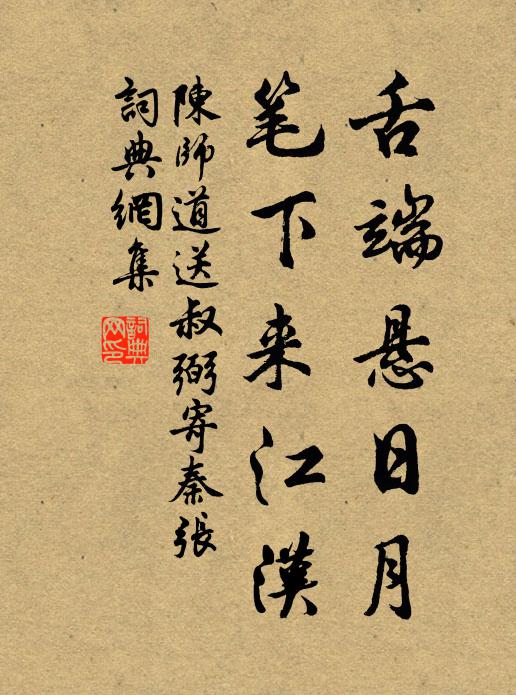 舌端悬日月
笔下来江漢
陳師道送叔弼寄秦張
詞典網集
詞典
网印